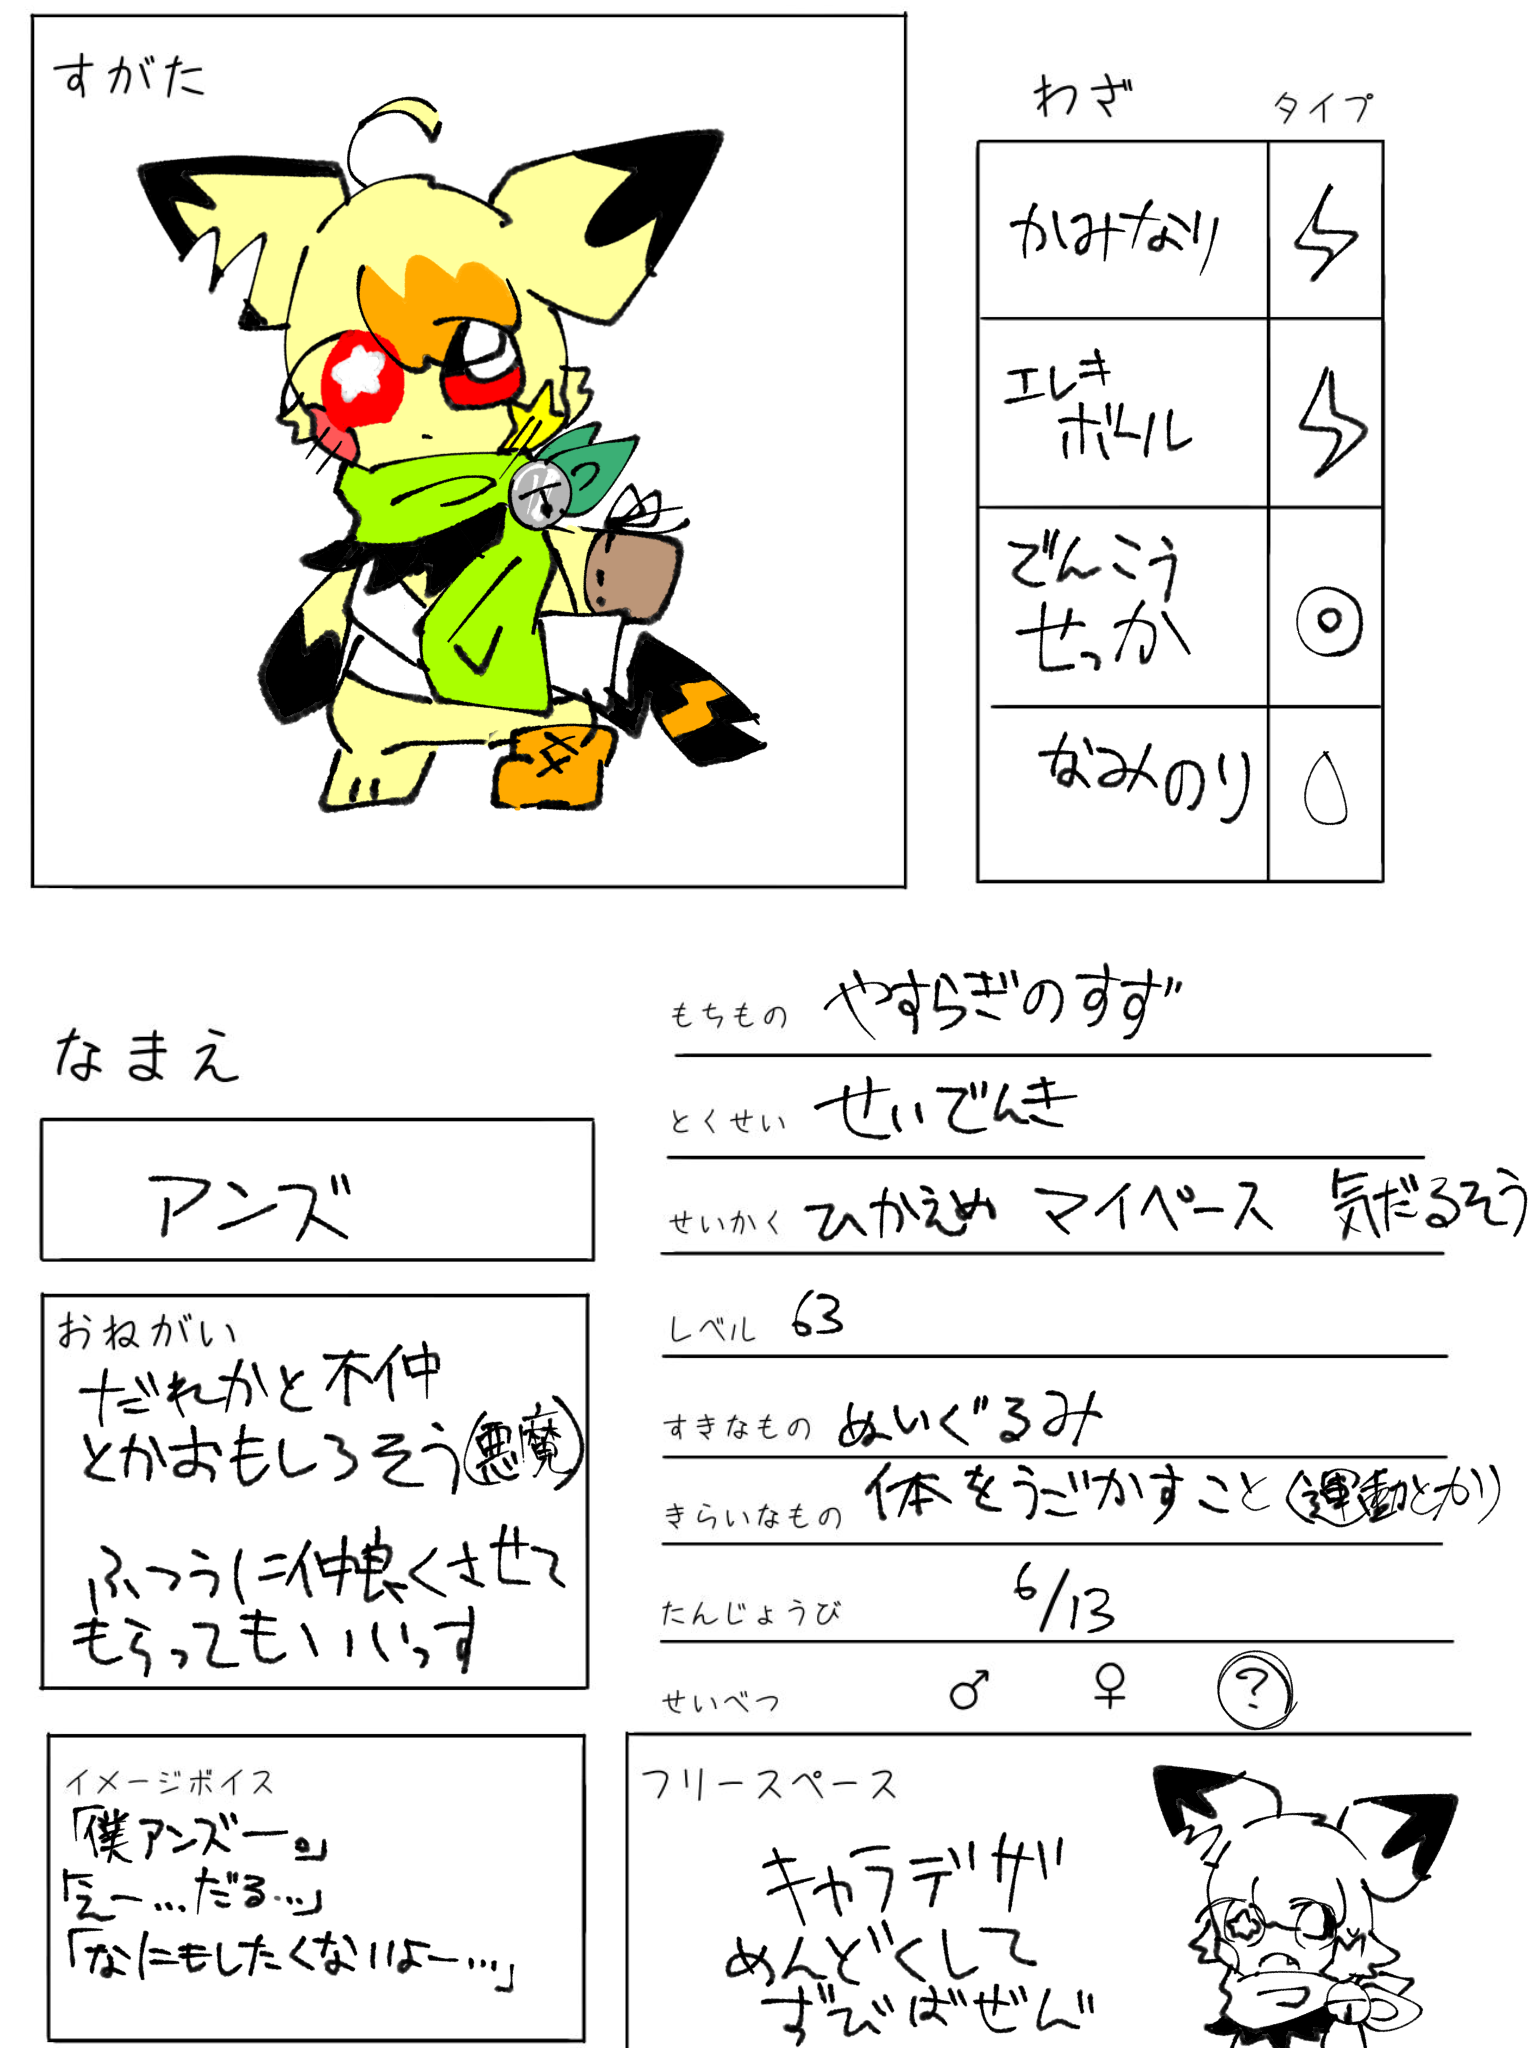 すがた
わざ タイプ
かみなり
エレキ
ボール
でんこう
せっか
なみのり
もちもの やすらぎのすず
とくせい せいでんき
せいかく ひかえめ マイペース 気だるそう
レベル 63
すきなもの ぬいぐるみ
きらいなもの 体をうごかすこと(運動とか)
たんじょうび 6/13
せいべつ ♂ ♀ ?
なまえ
アンズ
おねがい
だれかと不仲
とかおもしろそう(悪魔)
ふつうに仲良くさせて
もらってもいいっす
イメージボイス
「僕アンズー。」
「えー…だる…」
「なにもしたくないよー…」
フリースペース
キャラデザ
めんどくして
ずびばぜん゛